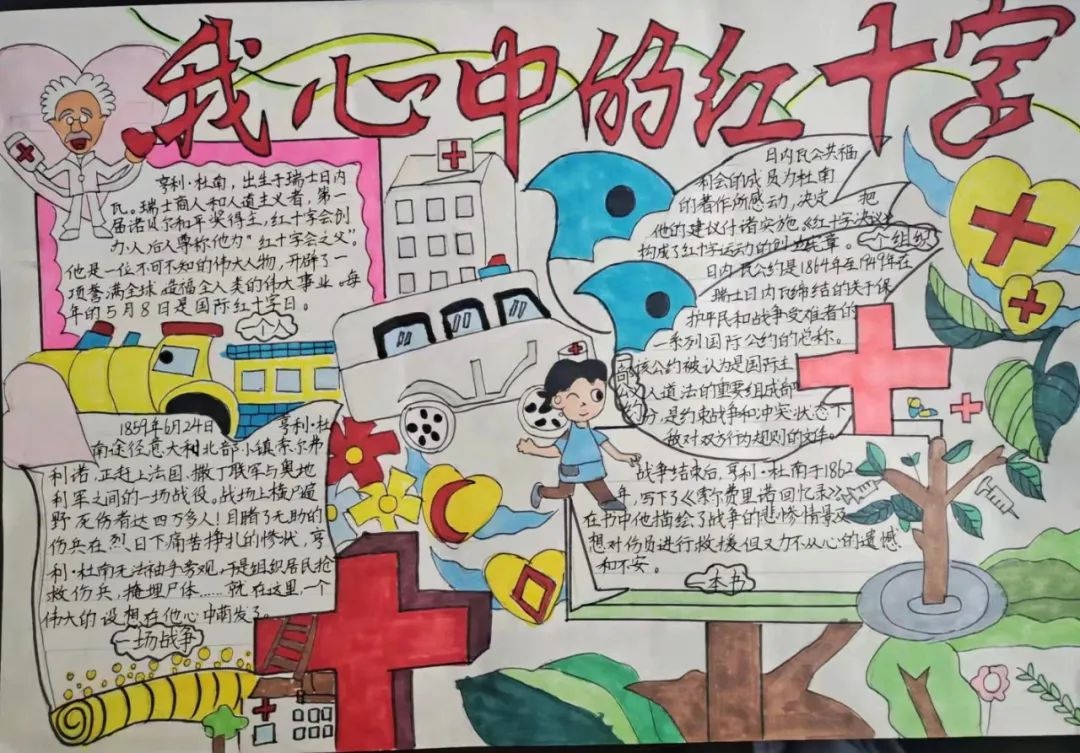 我心中的红十字
亨利·杜南，出生于瑞士日内
瓦。瑞士商人和人道主义者，第一
届诺贝尔和平奖得主，红十字会创
办人，后人尊称他为“红十字会之父”。
他是一位不可不知的伟大人物，开辟了一
项誉满全球，造福全人类的伟大事业。每
年的5月8日是国际红十字日。
一个人
1859年6月24日，亨利·杜
南途径意大利北部小镇索尔弗
利诺，正赶上法国、撒丁联军与奥地
利军之间的一场战役。战场上横尸遍
野，死伤者达四万多人！目睹了无助的
伤兵在烈日下痛苦挣扎的惨状，亨
利·杜南无法袖手旁观，于是组织居民抢
救伤兵，掩埋尸体……就在这里，一个
伟大的设想在他心中萌发了。
一场战争
日内瓦公共福
利会的成员为杜南
的著作所感动，决定把
他的建议付诸实施。《红十字决议》
构成了红十字运动的创立宪章。
一个组织
日内瓦公约是1864年至1949年在
瑞士日内瓦缔结的关于保
护平民和战争受难者的
一系列国际公约的总称。
该公约被认为是国际主
义人道法的重要组成部
分，是约束战争和冲突状态下
敌对双方行动规则的文件。
战争结束后，亨利·杜南于1862
年，写下了《索尔费里诺回忆录》，
在书中他描绘了战争的悲惨情景及
想对伤员进行救援但又力不从心的遗憾
和不安。
一本书